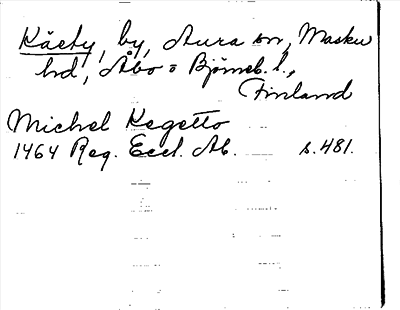 Käety, by, Aura sn, Masku
hd, Åbo o Björneb. l.,
Finland
Michel Kegetto
1464 Reg. Eccl. Ab. s. 481.